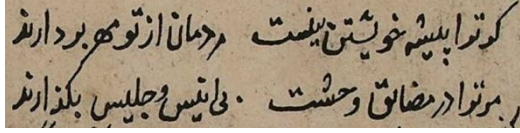 کو ترا پیشه خویشتن بینست مردمان از تو مهر بردارند
مر ترا در مضائق وحشت بی انیس و جلیس بکذارند